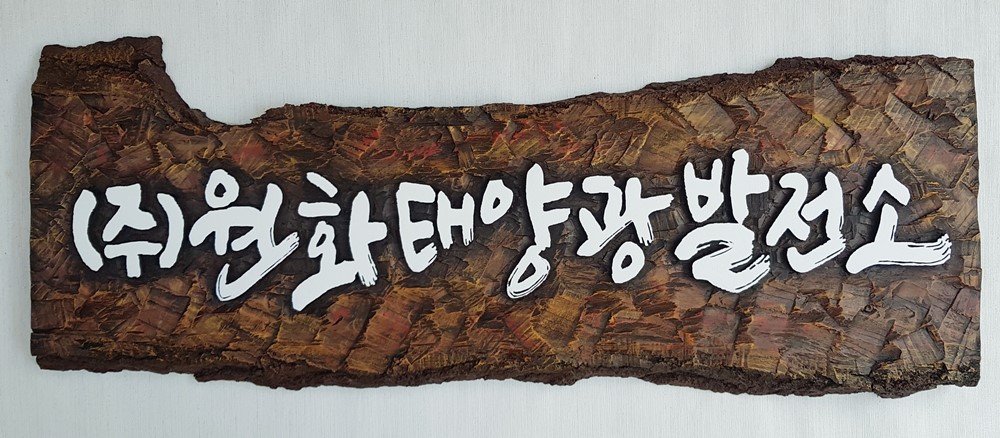 (주)원화태양광발전소